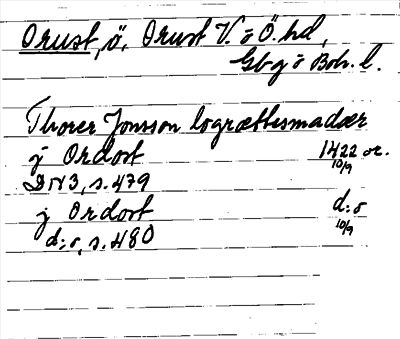 Orust, ö, Orust V. o Ö. hd,
Gbg o Boh. l.
Thorer Jonsson logrættesmadær
j Ordost 1422 or.
10/9
DN 3, s. 479
j Ordost d:o
10/9
d:o, s. 480